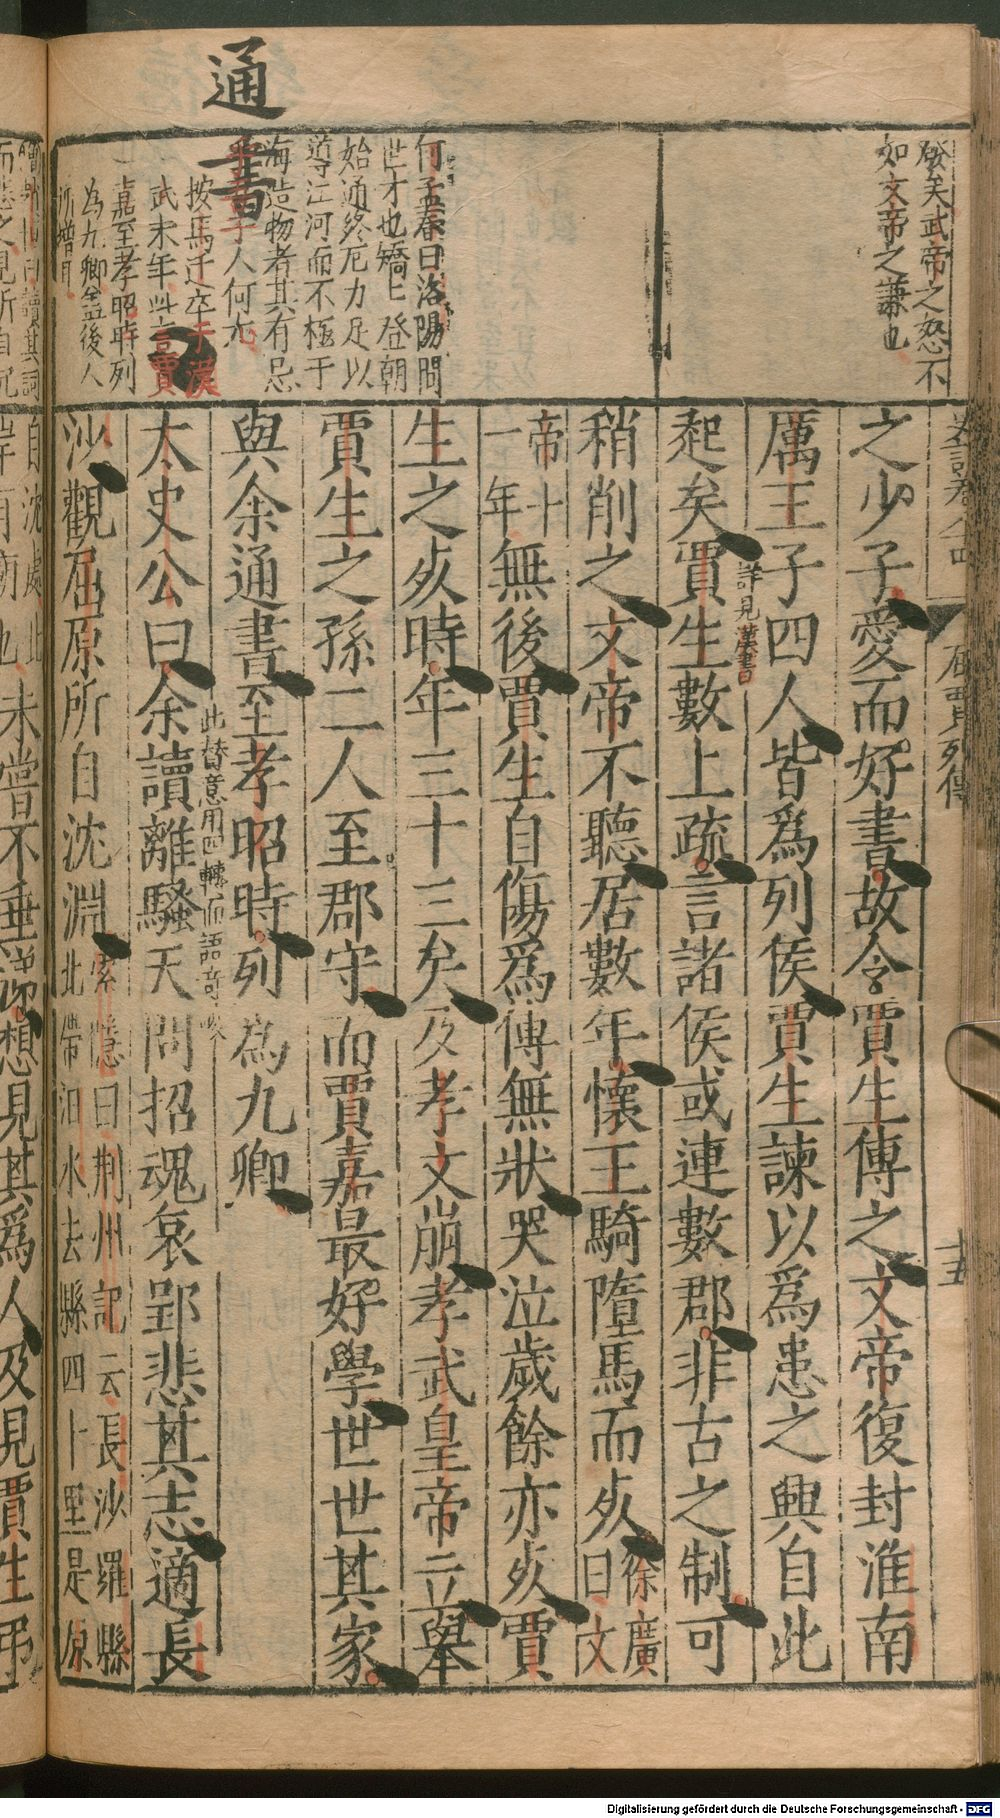 通
書
發矣武帝之怒不
如文帝之謙也
何孟春曰洛陽間
世才也矯匕登朝
始通終厄力足以
導江河而不極于
海造物者其有忌
人何尤
按馬迁卒于漢
武末年此言賈
嘉至孝昭時列
為九卿盖後人
所增耳
屈賈列傳
十五
之少子愛而好書故令賈生傳之文帝復封淮南
厲王子四人皆爲列侯賈生諫以爲患之興自此
起矣賈生數上疏言諸侯或連數郡非古之制可
詳見漢書
稍削之文帝不聽居數年懷王騎墮馬而死徐廣曰文
帝十一年無後賈生自傷爲傅無狀哭泣歲餘亦死賈
生之死時年三十三矣及孝文崩孝武皇帝立舉
賈生之孫二人至郡守而賈嘉最好學世世其家
與余通書至孝昭時列為九卿
此賛意用四轉而語奇
太史公曰余讀離騷天問招魂哀郢悲其志適長
沙觀屈原所自沈淵索隱曰荆州記云長沙羅縣北帶汨水去縣四十里是原
自沈處此岸有廟也未嘗不垂涕想見其爲人及見賈生弔
Digitalisierung gefördert durch die Deutsche Forschungsgemeinschaft - DFG